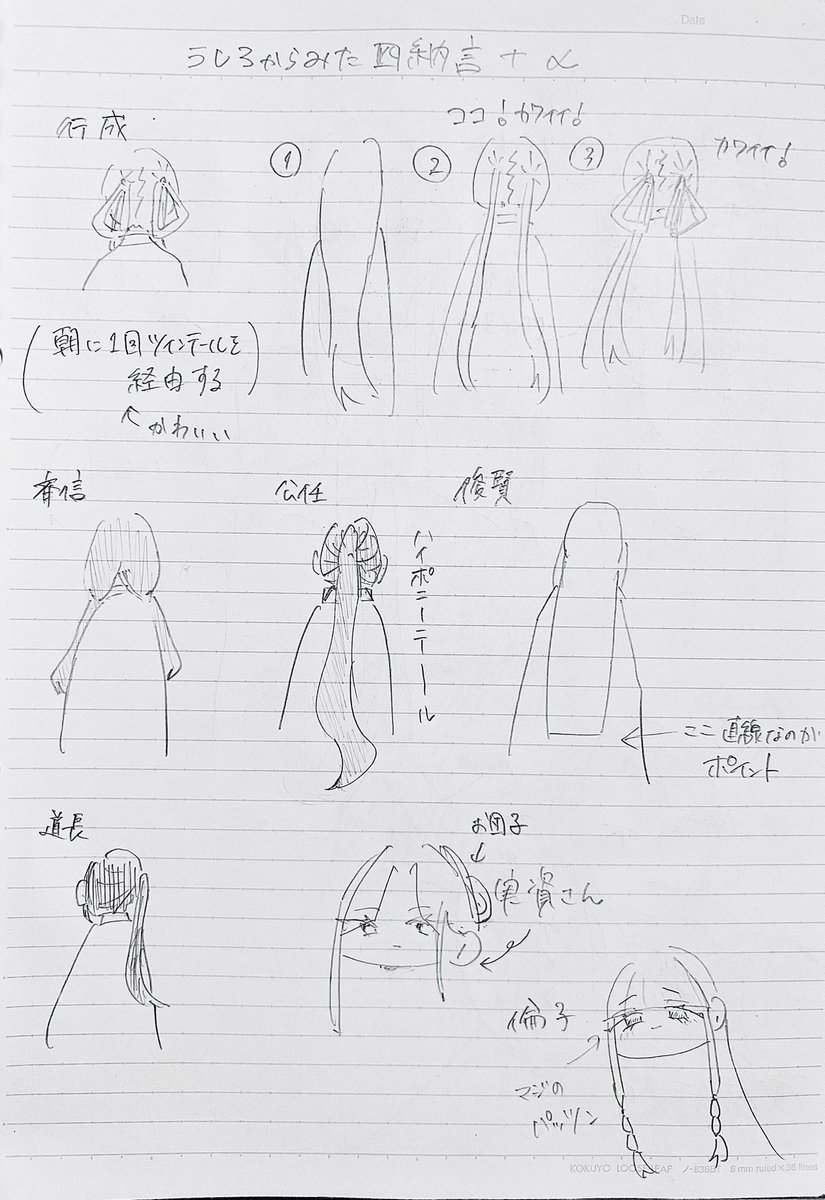 Date
うしろからみた四納言+α
行成
①
②
③
ココ!カワイイ!
カワイイ!
(朝に1回ツインテールを
経由する)
↖かわいい
斉信
公任
ハイポニーテール
俊賢
←ここ直線なのが
ポイント
道長
お団子
実資さん
倫子
マジの
パッツン
KOKUYO LOOSE-LEAF ノ-836BT 6 mm ruled×36 lines